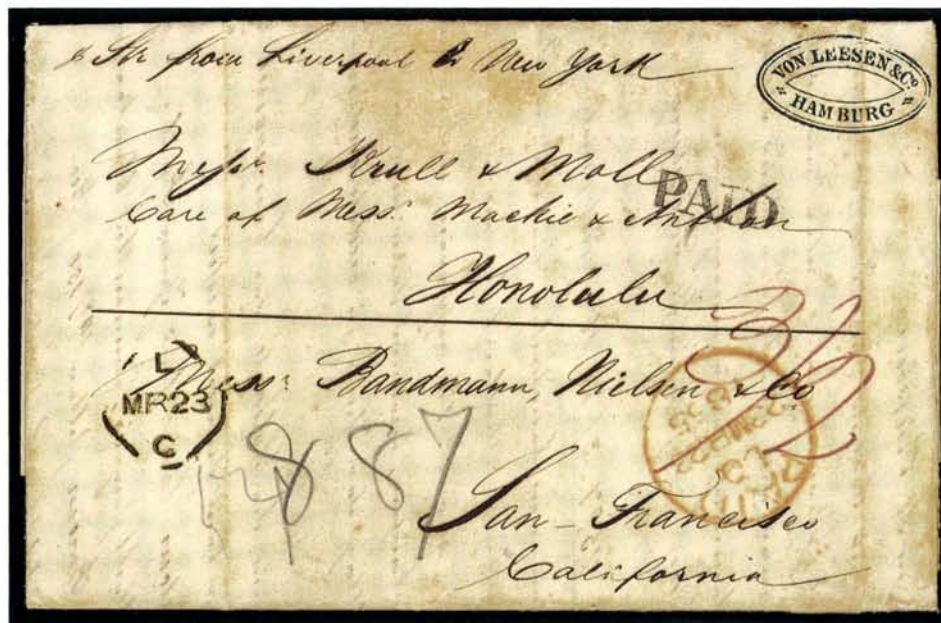 Str from Liverpool to New York
VON LEESEN & Co
HAMBURG
Messr. Krull & Moll
PAID
Care of Messr. Mackie & Anthon
Honolulu
L
MR23
C
Messr. Bandmann, Nielsen & Co
PAID
4887
San-Francisco
California